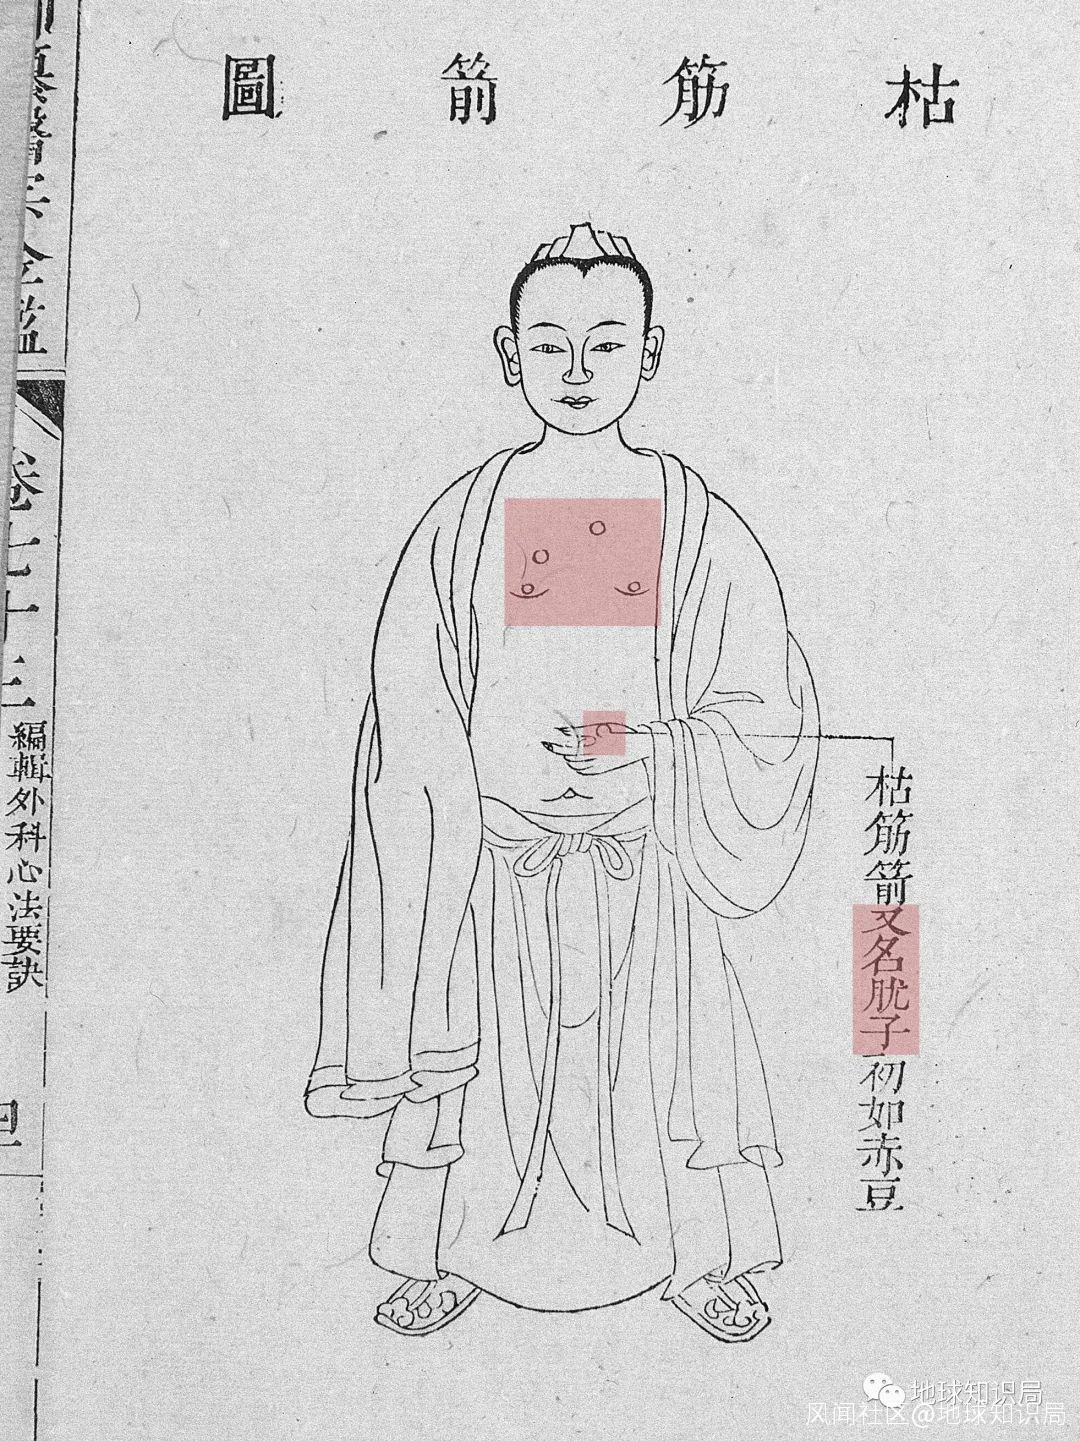 枯筋箭圖
枯筋箭又名肬子初如赤豆
醫宗金鑑
卷七十三
編輯外科心法要訣
地球知识局
风闻社区@地球知识局